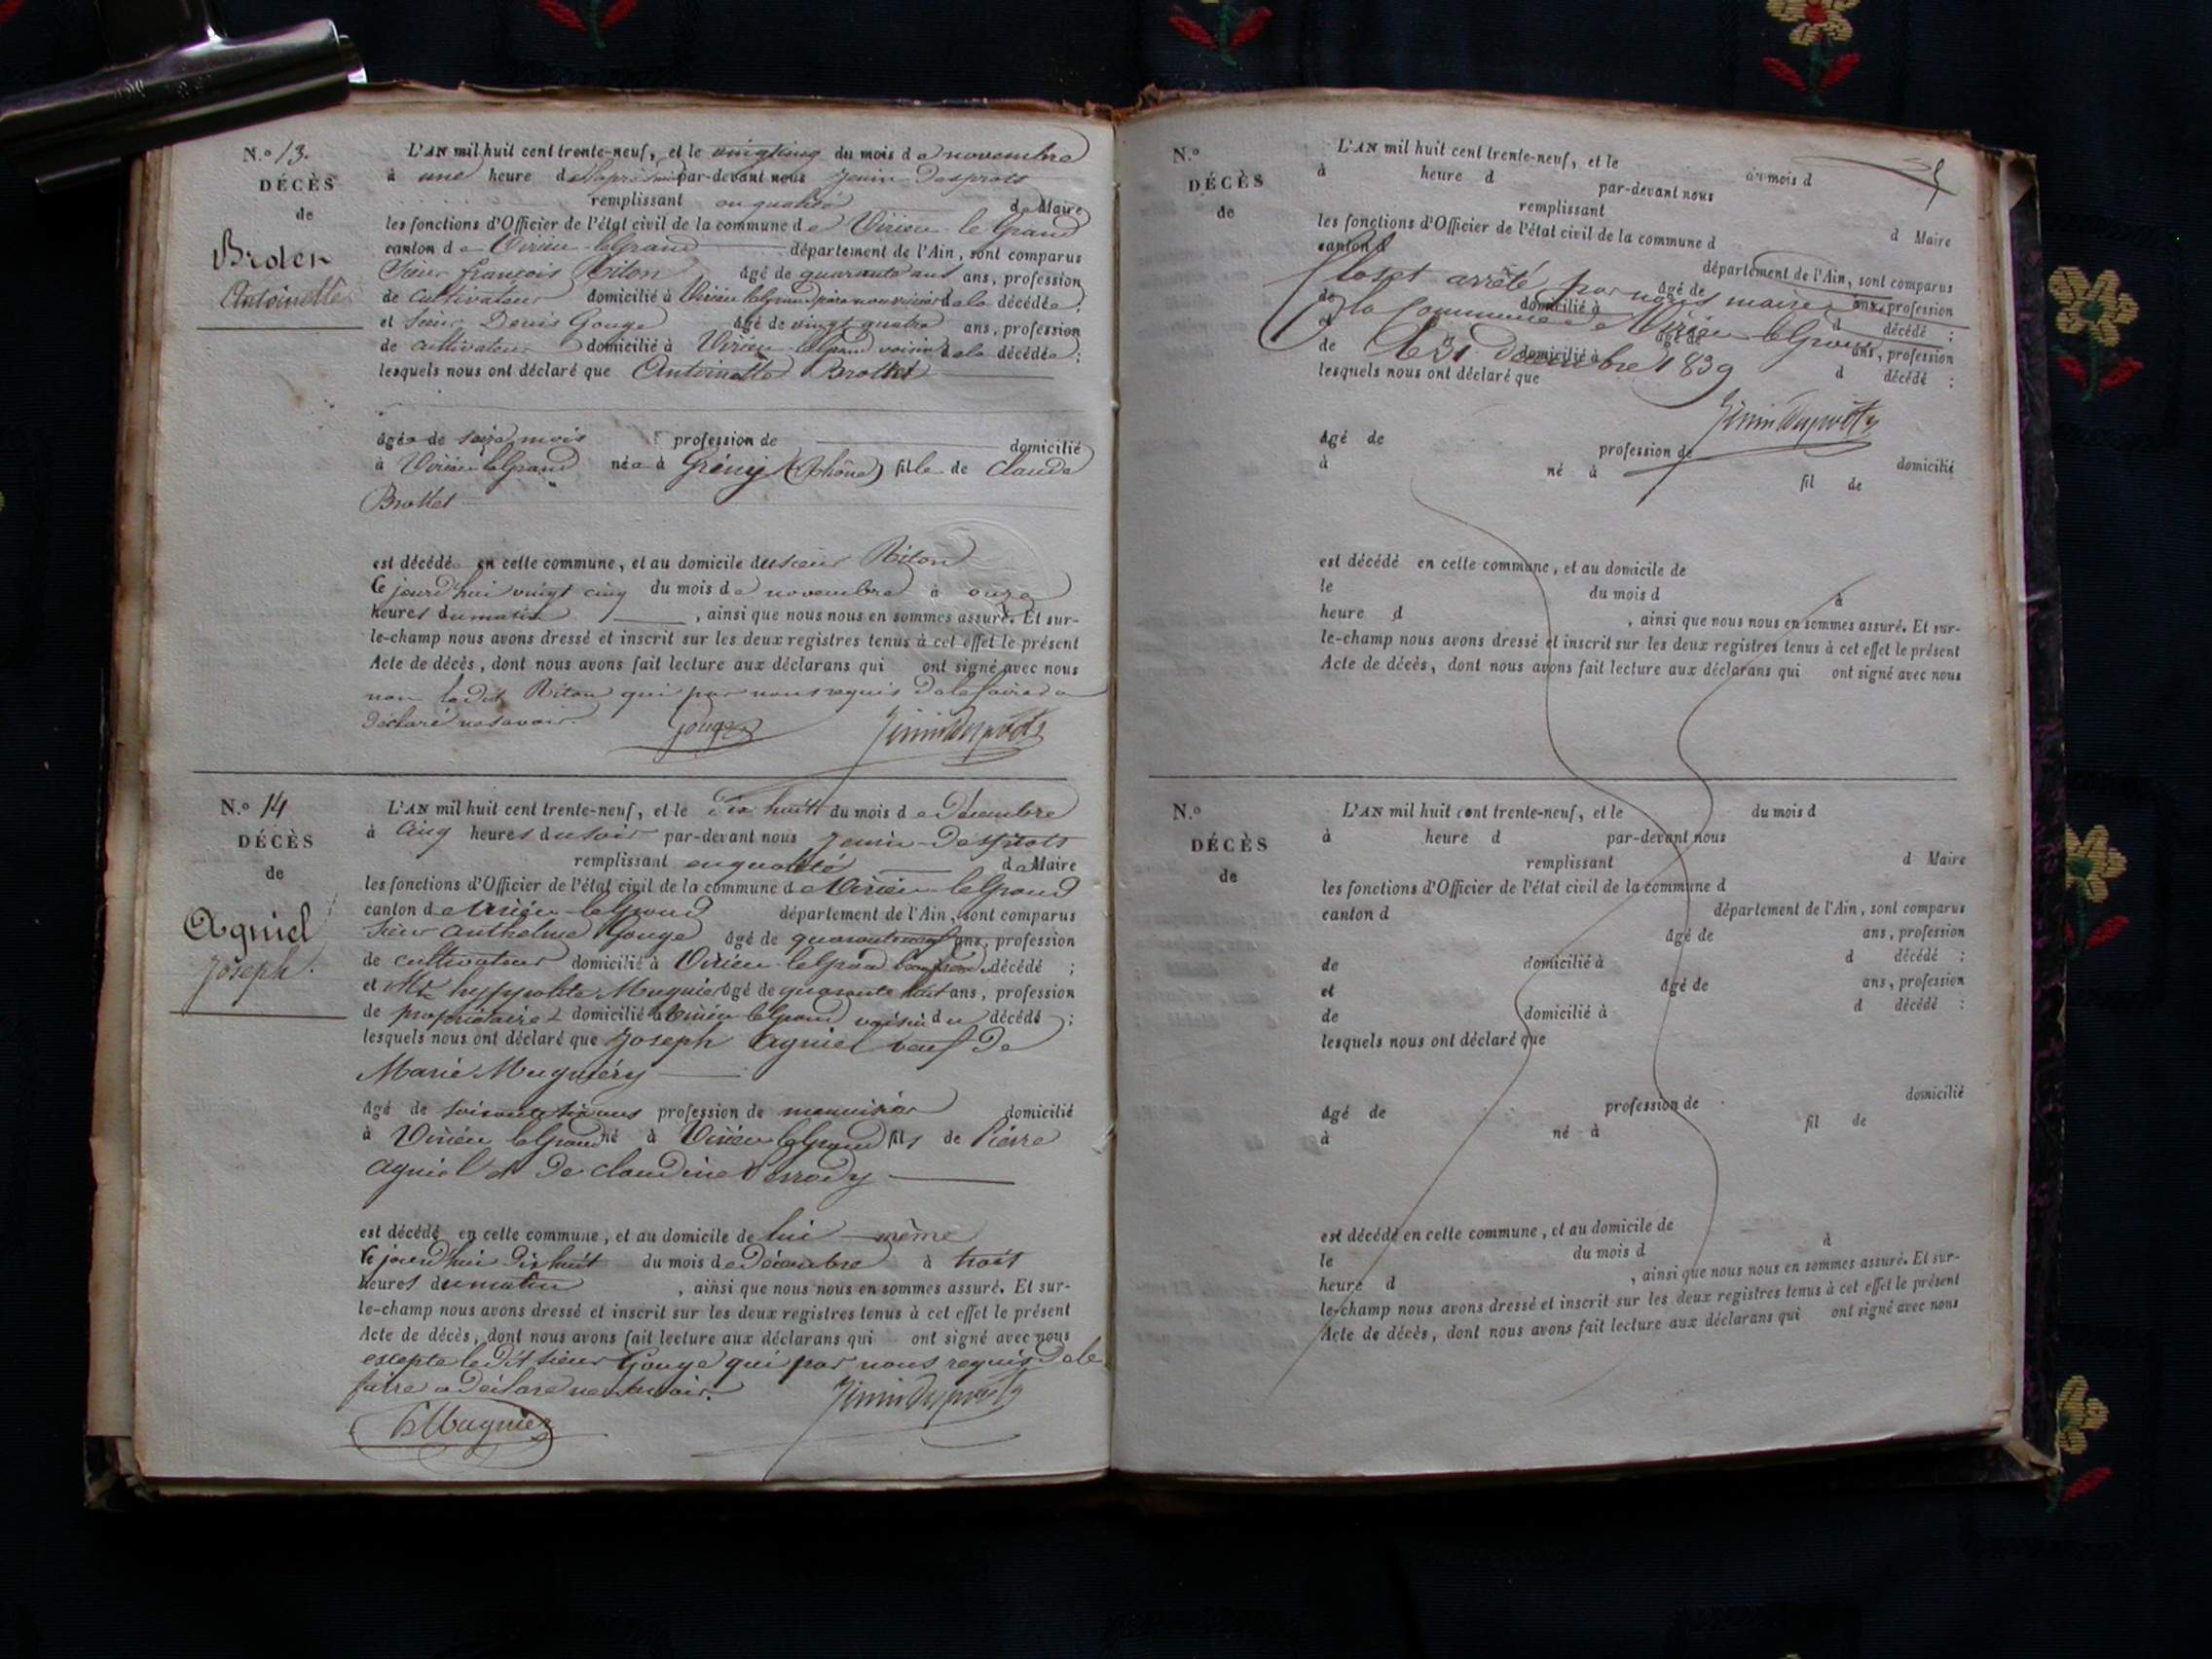 N.º 13.
DÉCÈS
de
Antoinette
L'AN mil huit cent trente-neuf, et le vingt cinq du mois de novembre
à une heure de l'après midi par-devant nous Jenin Desprots
remplissant en qualité de Maire
les fonctions d'Officier de l'état civil de la commune de Virieu le Grand
canton de Virieu le Grand département de l'Ain, sont comparus
Sieur françois Riton âgé de quarante ans ans, profession
de cultivateur domicilié à Virieu le Grand père nourricier de la décédée;
et Sieur Denis Gouge âgé de vingt quatre ans, profession
de cultivateur domicilié à Virieu le Grand voisin de la décédée;
lesquels nous ont déclaré que Antoinette Brottet
âgée de seize mois profession de domicilié
à Virieu le Grand née à (Rhône) fille de Claude
Brottet
est décédée en cette commune, et au domicile du sieur Riton
Ce jourd'hui vingt cinq du mois de novembre à onze
heures du matin, ainsi que nous nous en sommes assuré. Et sur-
le-champ nous avons dressé et inscrit sur les deux registres tenus à cet effet le présent
Acte de décès, dont nous avons fait lecture aux déclarans qui ont signé avec nous
non le dit Riton qui par nous requis de le faire a
déclaré ne savoir
Gouge Jenin Desprots
N.º 14
DÉCÈS
de
Agniel
Joseph.
L'AN mil huit cent trente-neuf, et le Dix huit du mois de Décembre
à Cinq heures du soir par-devant nous Jenin Desprots
remplissant en qualité de Maire
les fonctions d'Officier de l'état civil de la commune de Virieu le Grand
canton de Virieu le Grand département de l'Ain, sont comparus
Sieur Anthelme Gouge âgé de quarante neuf ans, profession
de cultivateur domicilié à Virieu le Grand beau frère du décédé;
et Mr hyppolite Mugnier âgé de quarante huit ans, profession
de propriétaire domicilié à Virieu le Grand voisin du décédé;
lesquels nous ont déclaré que Joseph Agniel veuf de
Marie Mugniery
âgé de soixante six ans profession de menuisier domicilié
à Virieu le Grand né à Virieu le Grand fils de Pierre
Agniel et de Claudine
est décédé en cette commune, et au domicile de lui même
Ce jourd'hui dix huit du mois de Décembre à trois
heures du matin, ainsi que nous nous en sommes assuré. Et sur-
le-champ nous avons dressé et inscrit sur les deux registres tenus à cet effet le présent
Acte de décès, dont nous avons fait lecture aux déclarans qui ont signé avec nous
excepté le dit sieur Gouge qui par nous requis de le
faire a déclaré ne savoir.
H Mugnier Jenin Desprots
N.º
DÉCÈS
de
L'AN mil huit cent trente-neuf, et le du mois d
à heure d par-devant nous
remplissant d Maire
les fonctions d'Officier de l'état civil de la commune d
canton d département de l'Ain, sont comparus
Clos et arrêté par nous maire
âgé de ans, profession
de domicilié à d décédé;
la Commune de Virieu le Grand
et âgé de ans, profession
Le 31 Décembre 1839
de domicilié à d décédé;
lesquels nous ont déclaré que
Jenin Desprots
âgé de profession de domicilié
à né à fil de
est décédé en cette commune, et au domicile de
le du mois d à
heure d, ainsi que nous nous en sommes assuré. Et sur-
le-champ nous avons dressé et inscrit sur les deux registres tenus à cet effet le présent
Acte de décès, dont nous avons fait lecture aux déclarans qui ont signé avec nous
N.º
DÉCÈS
de
L'AN mil huit cent trente-neuf, et le du mois d
à heure d par-devant nous
remplissant d Maire
les fonctions d'Officier de l'état civil de la commune d
canton d département de l'Ain, sont comparus
âgé de ans, profession
de domicilié à d décédé;
et âgé de ans, profession
de domicilié à d décédé:
lesquels nous ont déclaré que
âgé de profession de domicilié
à né à fil de
est décédé en cette commune, et au domicile de
le du mois d à
heure d, ainsi que nous nous en sommes assuré. Et sur-
le-champ nous avons dressé et inscrit sur les deux registres tenus à cet effet le présent
Acte de décès, dont nous avons fait lecture aux déclarans qui ont signé avec nous